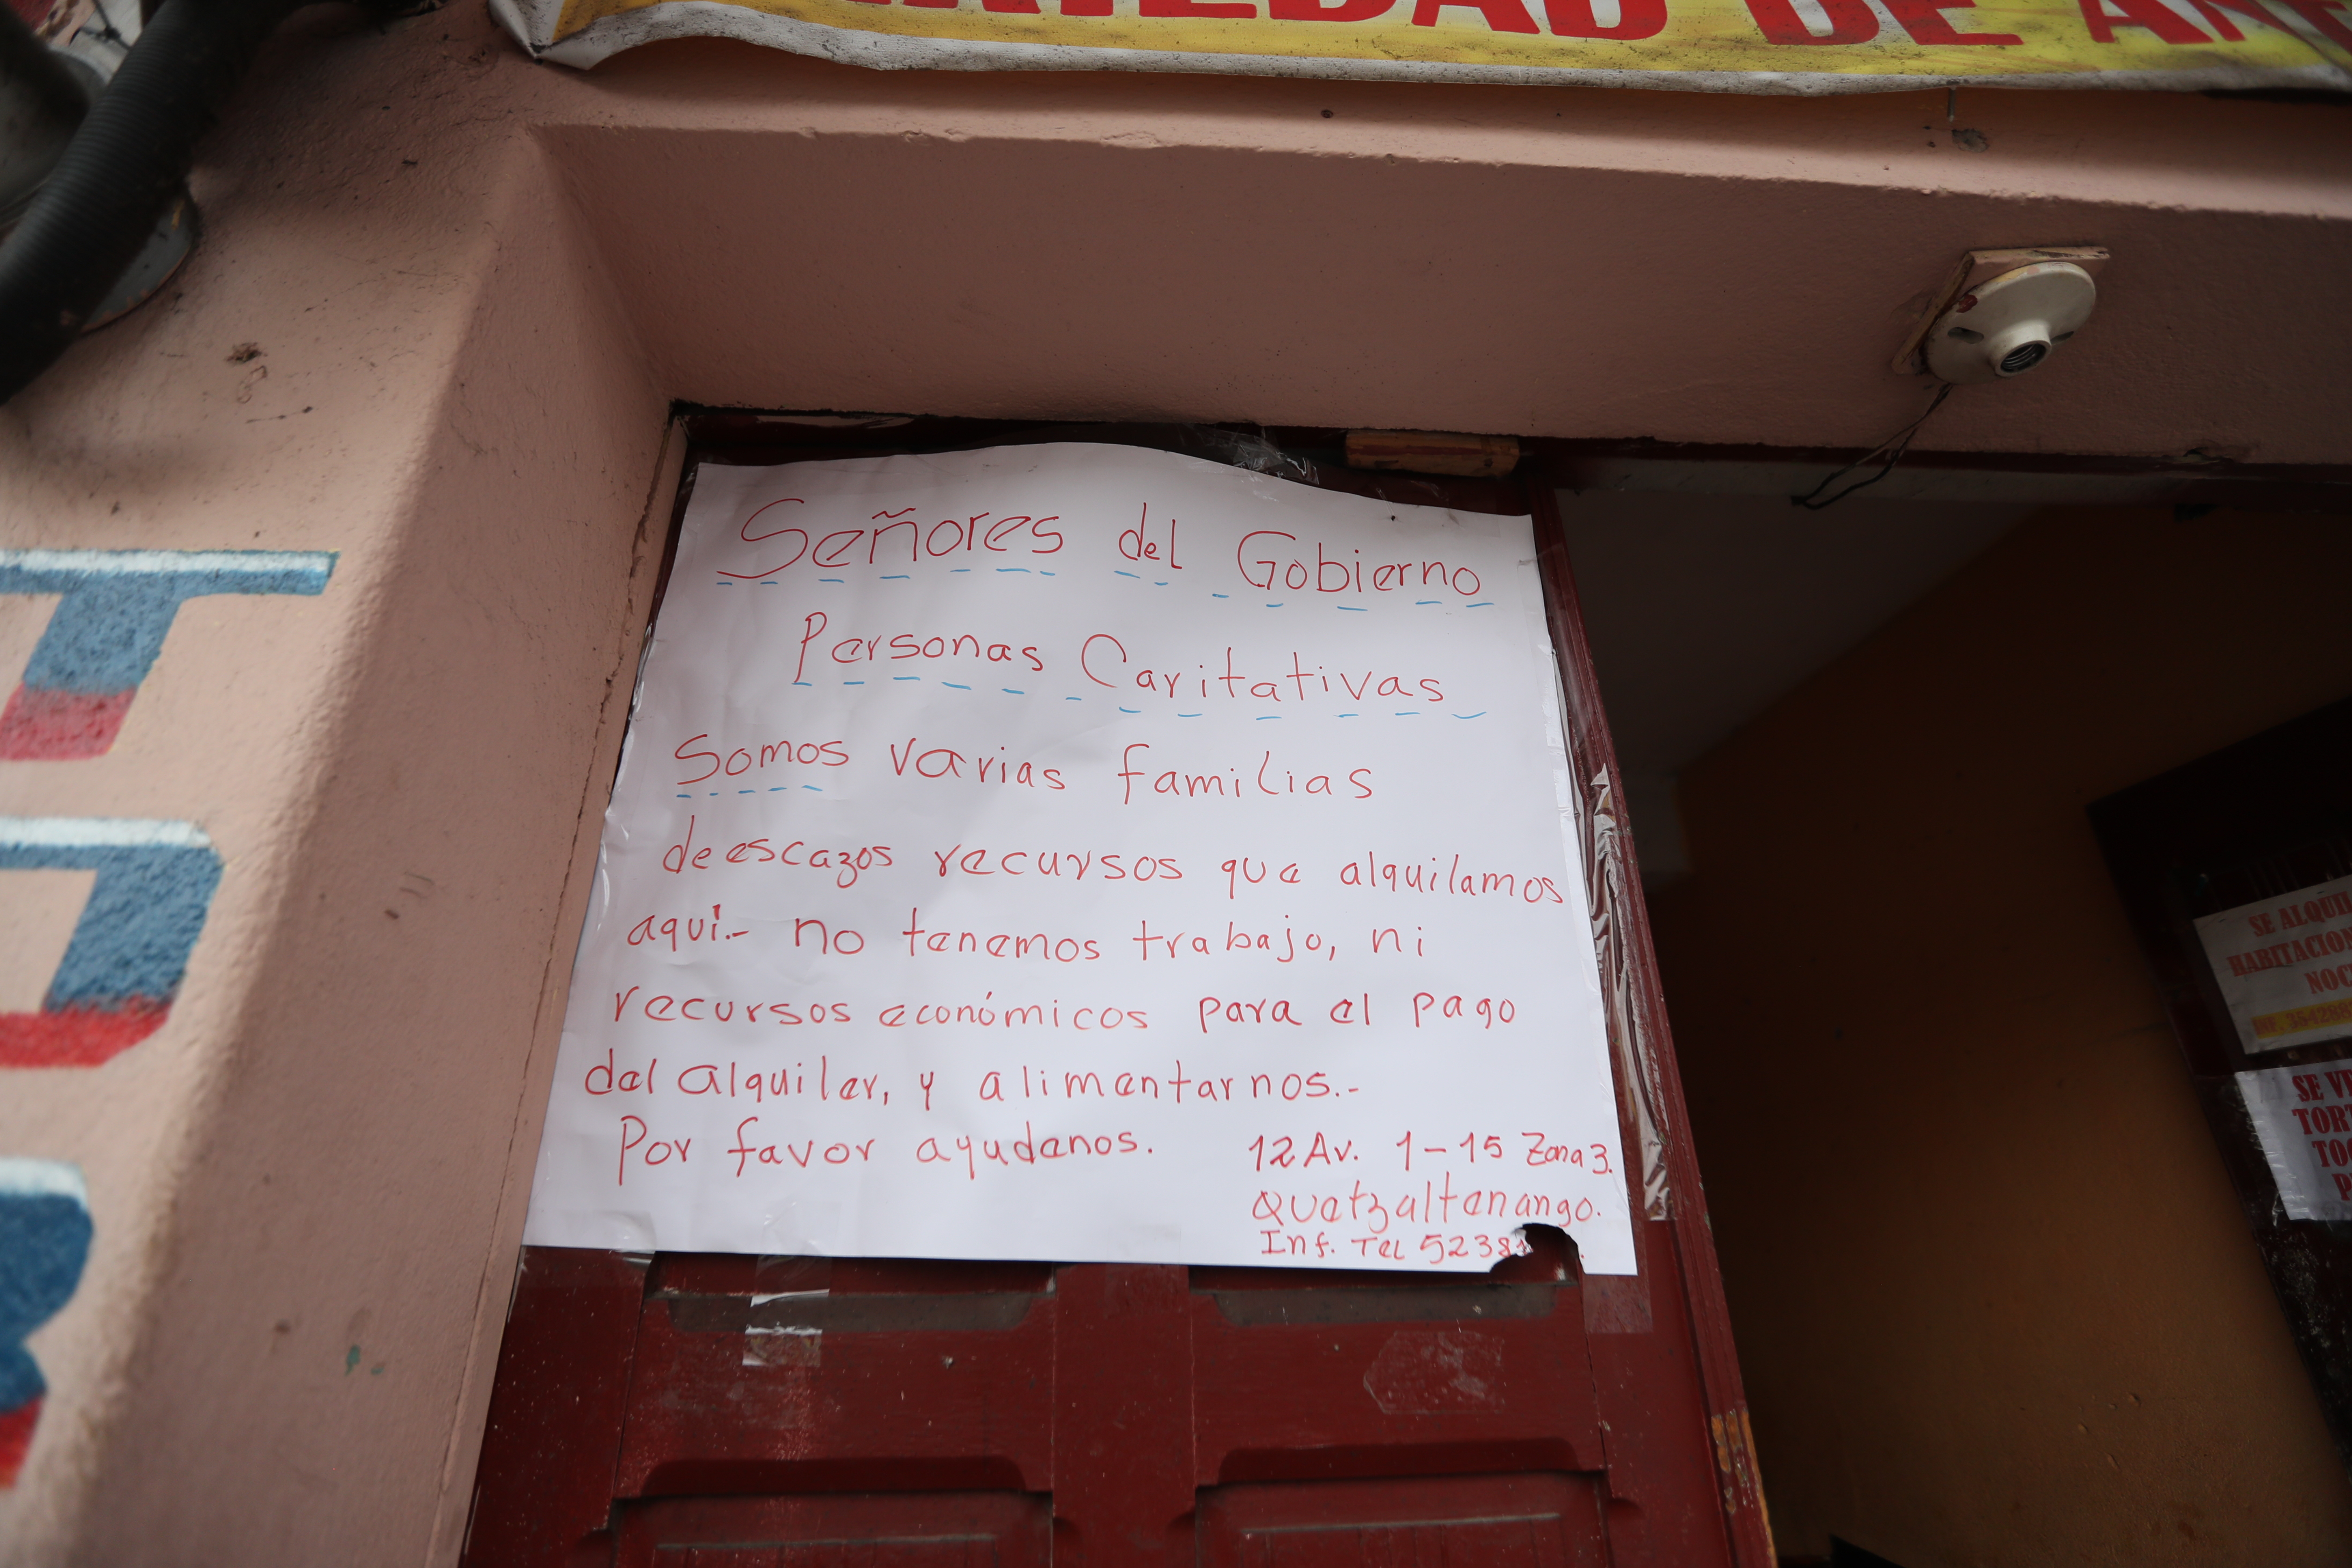 DE
Señores del Gobierno
Personas Caritativas
Somos varias familias
de escazos recursos que alquilamos
aquí.- no tenemos trabajo, ni
recursos económicos para el pago
del alquiler, y alimentarnos.-
Por favor ayudenos.
12 Av. 1-15 Zona 3.
Quetzaltenango.
Inf. Tel 5238
SE
SE